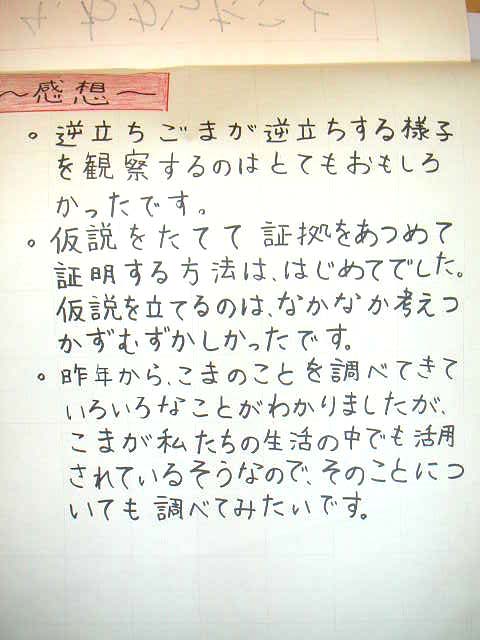 ～感想～
。逆立ちごまが逆立ちする様子
を観察するのはとてもおもしろ
かったです。
。仮説をたてて証拠をあつめて
証明する方法は、はじめてでした。
仮説を立てるのは、なかなか考えつ
かずむずかしかったです。
。昨年から、こまのことを調べてきて
いろいろなことがわかりましたが、
こまが私たちの生活の中でも活用
されているそうなので、そのことにつ
いても調べてみたいです。